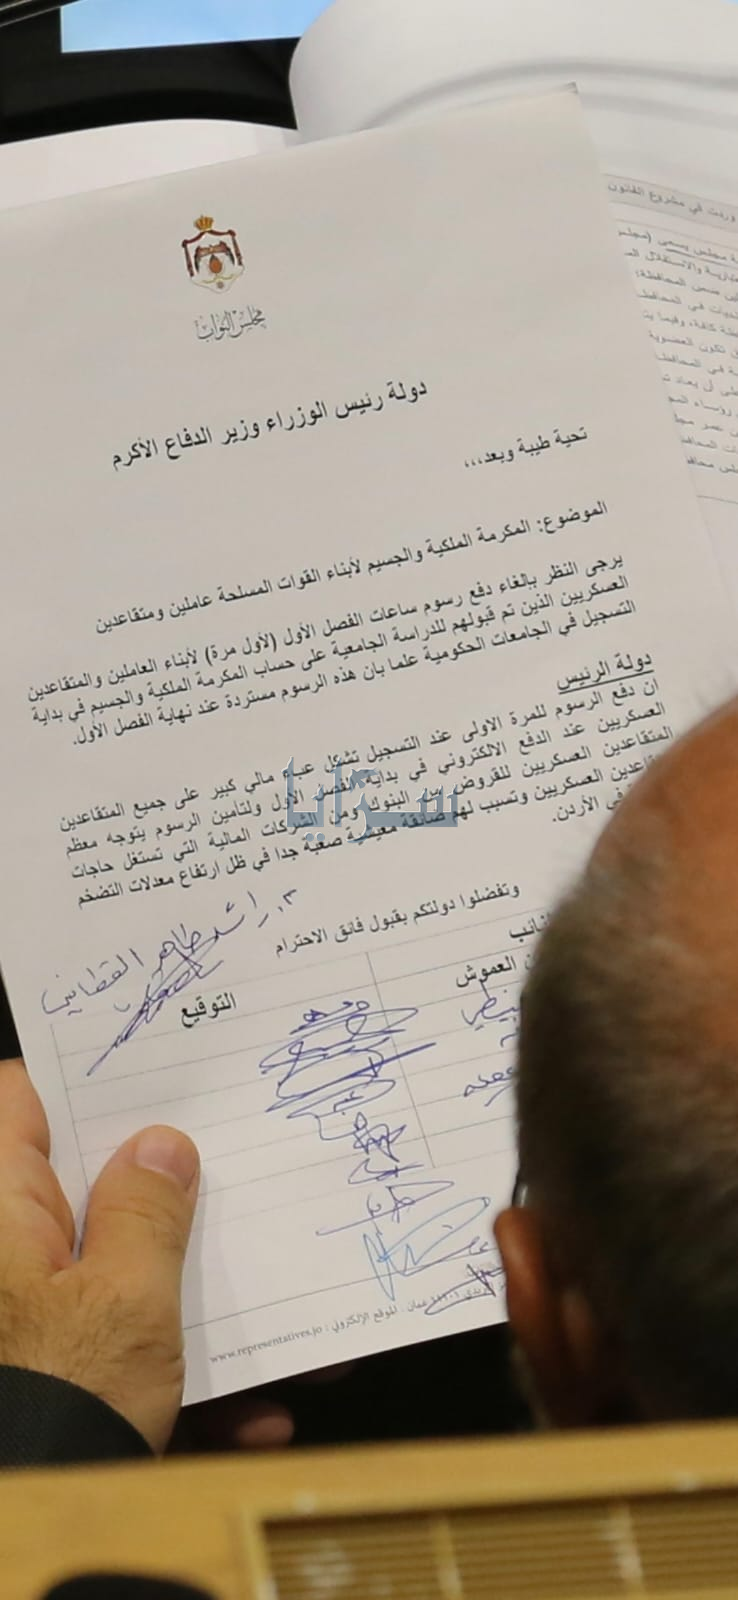 مجلس النواب
دولة رئيس الوزراء وزير الدفاع الأكرم
تحية طيبة وبعد،،،
الموضوع: المكرمة الملكية والجسيم لأبناء القوات المسلحة عاملين ومتقاعدين
يرجى النظر بإلغاء دفع رسوم ساعات الفصل الأول (لأول مرة) لأبناء العاملين والمتقاعدين
العسكريين الذين تم قبولهم للدراسة الجامعية على حساب المكرمة الملكية والجسيم في بداية
التسجيل في الجامعات الحكومية علما بان هذه الرسوم مستردة عند نهاية الفصل الأول.
دولة الرئيس
ان دفع الرسوم للمرة الاولى عند التسجيل تشكل عباء مالي كبير على جميع المتقاعدين
العسكريين عند الدفع الالكتروني في بداية الفصل الأول ولتأمين الرسوم يتوجه معظم
المتقاعدين العسكريين للقروض من البنوك ومن الشركات المالية التي تستغل حاجات
العسكريين وتسبب لهم ضائقة معيشية صعبة جدا في ظل ارتفاع معدلات التضخم
في الأردن.
وتفضلوا دولتكم بقبول فائق الاحترام
م. رائد طاهر القطاميني
العموش
التوقيع
عمان - الموقع الإلكتروني : www.representatives.jo
سرايا
وردت في مشروع القانون
مجلس يسمى (مجلس
والاستقلال
ضمن المحافظة
في المحافظة
كافة، وفيما
تكون العضوية
في المحافظة